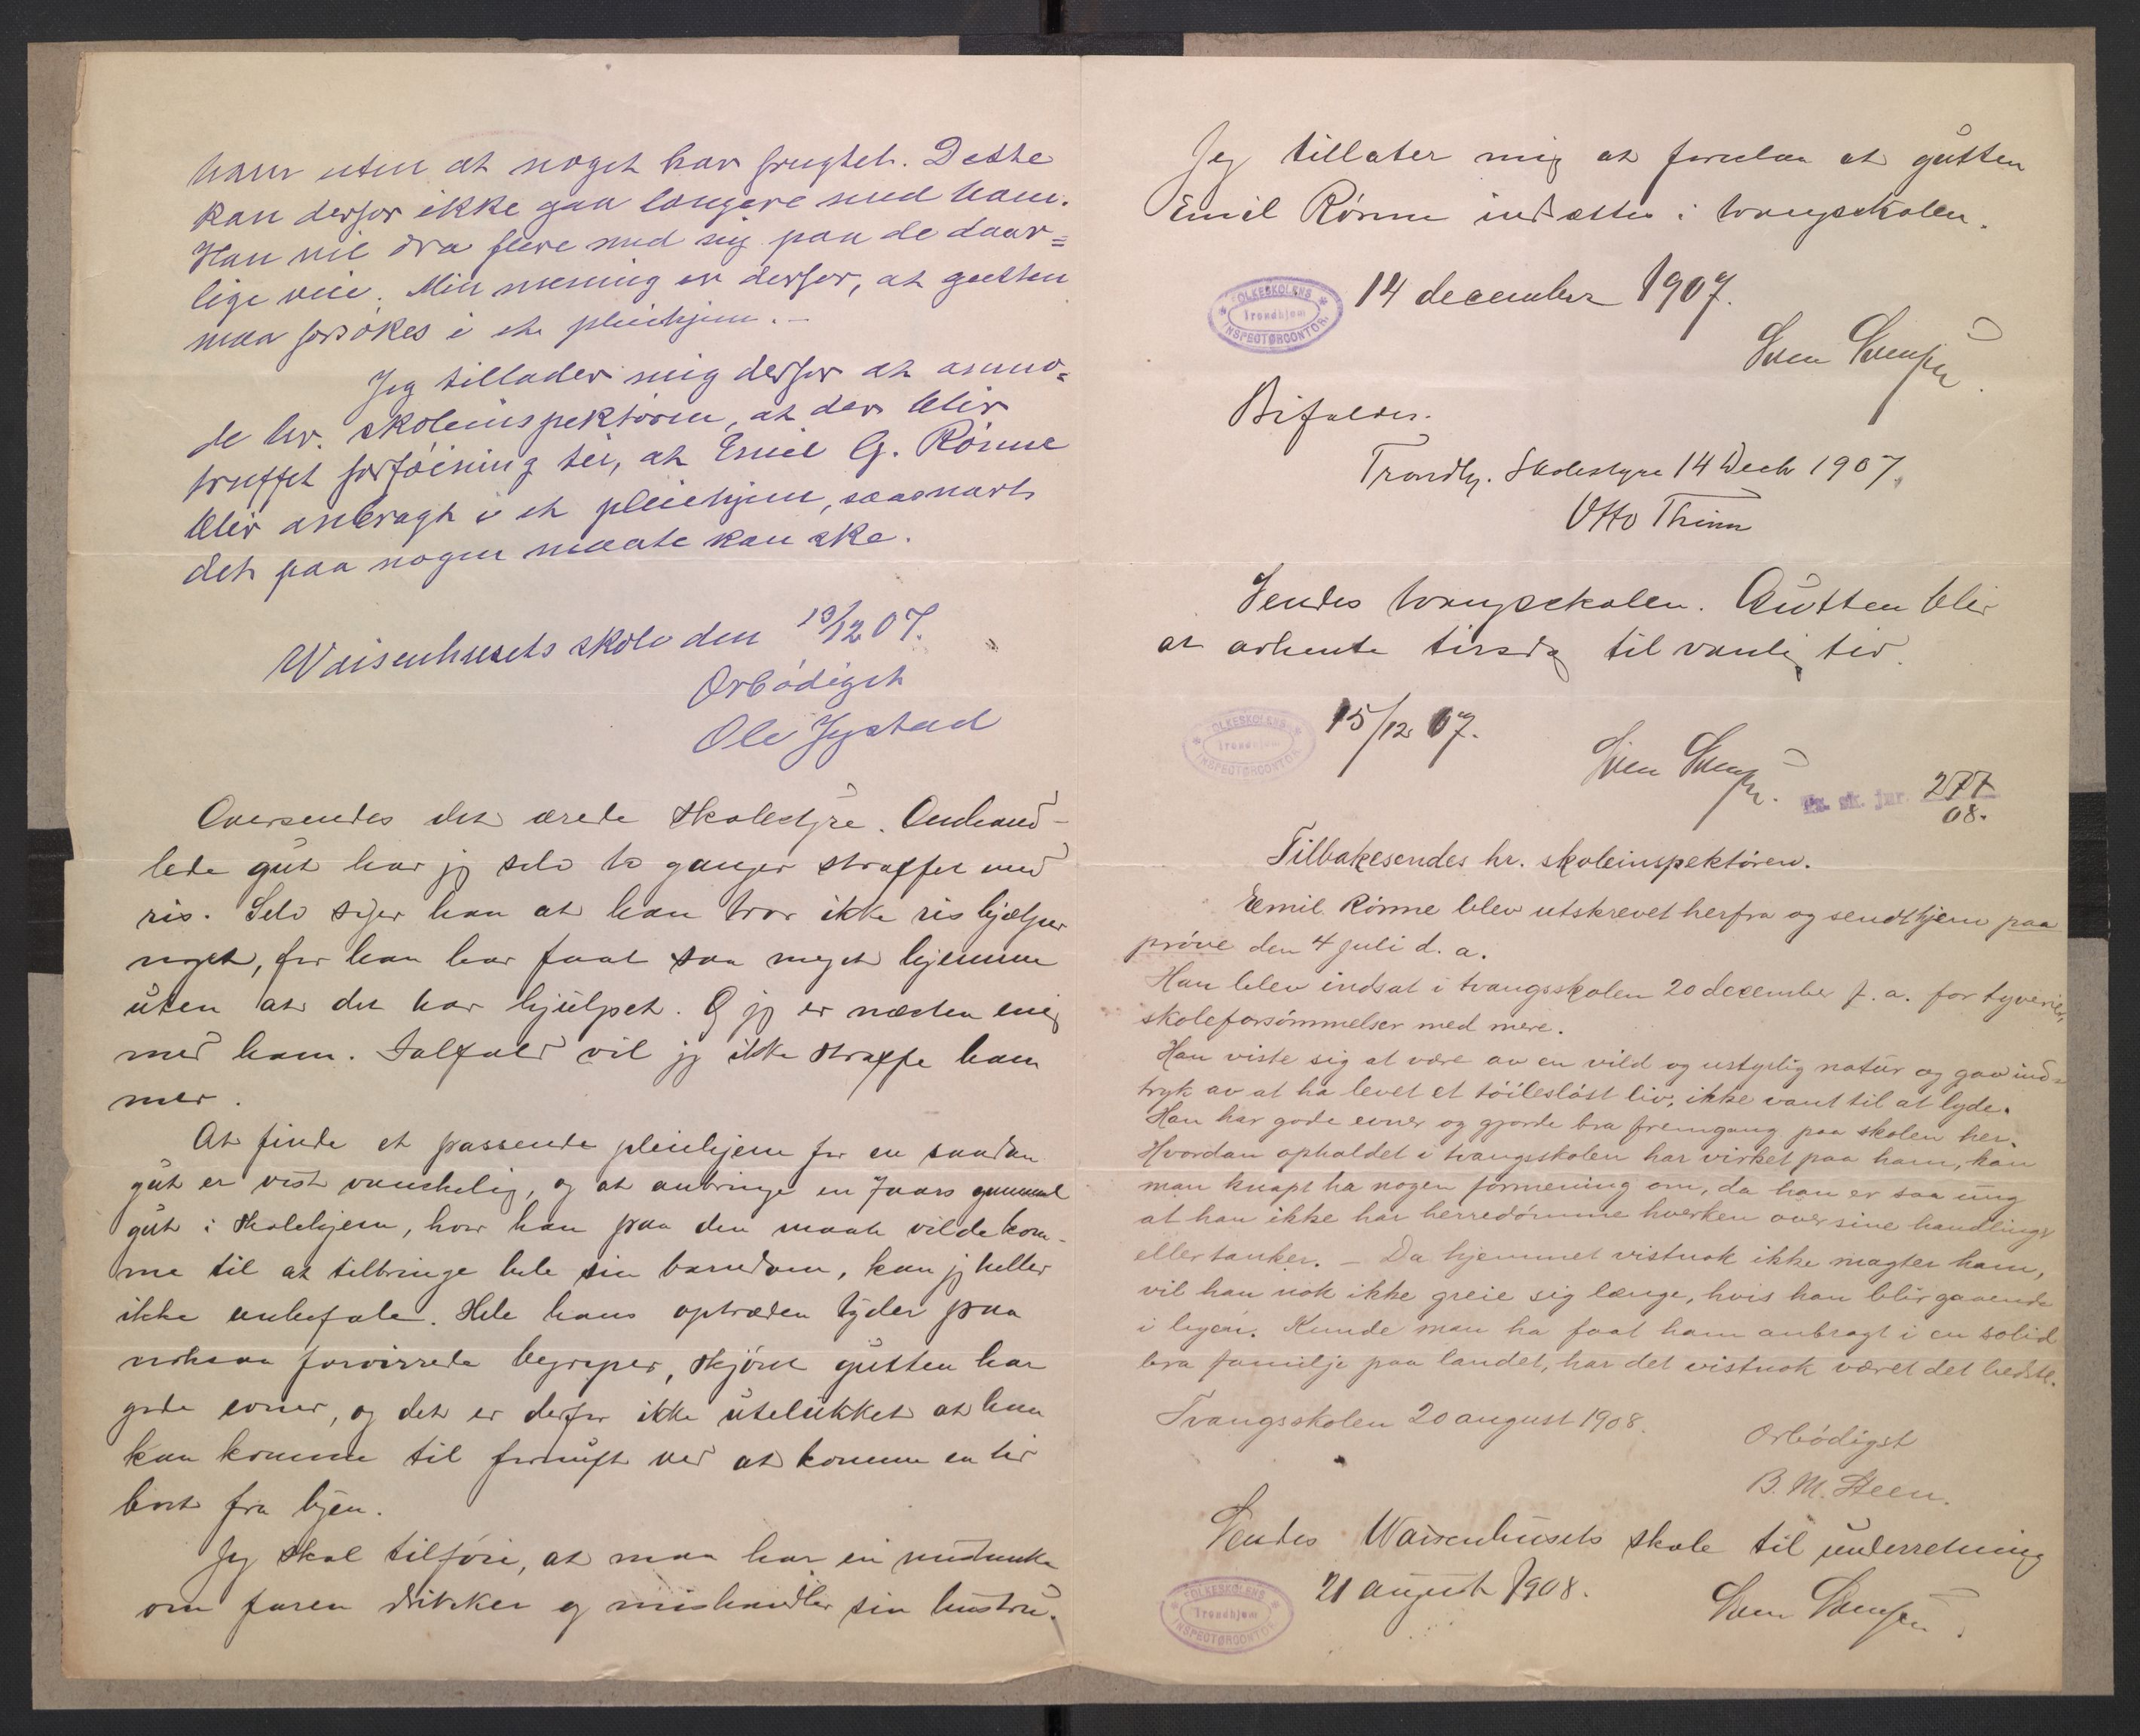 ham uten at noget har frugtet. Dette
kan derfor ikke gaa længere med ham.
Han vil dra flere med sig paa de daar=
lige veie. Min mening er derfor, at gutten
maa forsøkes i et pleiehjem.-
Jeg tillader mig derfor at anmo=
de hr. skoleinspektøren, at der blir
truffet forføining til, at Emil G. Rønne
blir anbragt i et pleiehjem, saasnart
det paa nogen maate kan ske.
Waisenhusets skole den 13/12 07.
Ærbødigst
Ole Jystad
Oversendes det ærede skolestyre. Omhand-
lede gut har jeg selv to ganger straffet med
ris. Selv siger han at han tror ikke ris hjælper
noget, for han har faat saa meget hjemme
uten at det har hjulpet. Og jeg er næsten enig
med ham. Ialfald vil jeg ikke straffe ham
mer.
At finde et passende pleiehjem for en saadan
gut er vist vanskelig, og at anbringe en 7 aars gammel
gut i skolehjem, hvor han paa den maate vilde kom-
me til at tilbringe hele sin barndom, kan jeg heller
ikke anbefale. Hele hans optræden tyder paa
noksaa forvirrede begreper, skjønt gutten har
gode evner, og det er derfor ikke utelukket at han
kan komme til fornuft ved at komme en tid
bort fra byen.
Jeg skal tilføie, at man har en mistanke
om faren drikker og mishandler sin hustru.
Jeg tillater mig at foreslaa at gutten
Emil Rønne indsættes i tvangsskolen.
FOLKESKOLENS Trondhjem INSPECTØRCONTOR.
14 december 1907.
Sven Svensen.
Bifaldes.
Trondhj. Skolestyre 14 Decbr 1907.
Otto Thinn
Sendes tvangsskolen. Gutten blir
at avhente tirsdag til vanlig tid.
FOLKESKOLENS Trondhjem INSPECTØRCONTOR.
15/12 07.
Sven Svensen.
jnr. 277/08.
Tilbakesendes hr. skoleinspektøren.
Emil Rønne blev utskrevet herfra og sendt hjem paa
prøve den 4 juli d. a.
Han blev indsat i tvangsskolen 20 december f. a. for tyverier,
skoleforsømmelser med mere.
Han viste sig at være av en vild og ustyrlig natur og gav ind=
tryk av at ha levet et tøilesløst liv, ikke vant til at lyde.
Han har gode evner og gjorde bra fremgang paa skolen her.
Hvordan opholdet i tvangsskolen har virket paa ham, kan
man knapt ha nogen formening om, da han er saa ung
at han ikke har herredømme hverken over sine handlinger
eller tanker. - Da hjemmet vistnok ikke magter ham,
vil han nok ikke greie sig længe, hvis han blir gaaende
i byen. Kunde man ha faat ham anbragt i en solid
bra familje paa landet, har det vistnok været det bedste.
Tvangsskolen 20 august 1908.
Ærbødigst
B. M. Steen.
Sendes Waisenhusets skole til underretning
FOLKESKOLENS Trondhjem INSPECTØRCONTOR.
21 august 1908.
Sven Svensen.